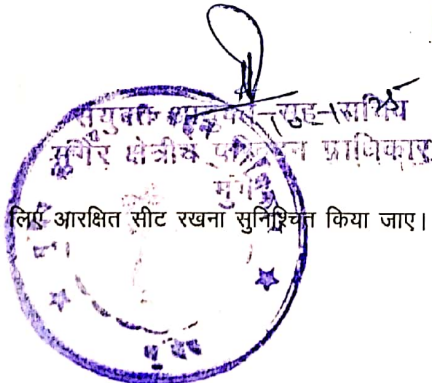 संयुक्त आयुक्त-सह-सचिव
मुंगेर क्षेत्रीय परिवहन प्राधिकार
मुंगेर
लिए आरक्षित सीट रखना सुनिश्चित किया जाए।
मुंगेर